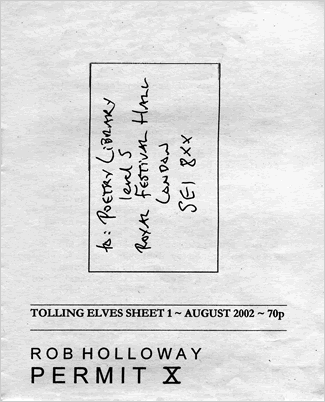 to: POETRY LIBRARY
level 5
ROYAL FESTIVAL HALL
LONDON
SE1 8XX
TOLLING ELVES SHEET 1 ~ AUGUST 2002 ~ 70p
ROB HOLLOWAY
PERMIT X